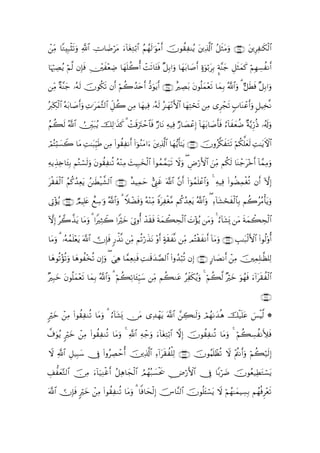 الْكَافِرِينَ ۝ وَمَثَلُ الَّذِينَ يُنفِقُونَ أَمْوَالَهُمُ ابْتِغَاءَ مَرْضَاتِ اللَّهِ وَتَثْبِيتًا مِّنْ
أَنفُسِهِمْ كَمَثَلِ جَنَّةٍ بِرَبْوَةٍ أَصَابَهَا وَابِلٌ فَآتَتْ أُكُلَهَا ضِعْفَيْنِ فَإِن لَّمْ يُصِبْهَا
وَابِلٌ فَطَلٌّ ۗ وَاللَّهُ بِمَا تَعْمَلُونَ بَصِيرٌ ۝ أَيَوَدُّ أَحَدُكُمْ أَن تَكُونَ لَهُ جَنَّةٌ مِّن
نَّخِيلٍ وَأَعْنَابٍ تَجْرِي مِن تَحْتِهَا الْأَنْهَارُ لَهُ فِيهَا مِن كُلِّ الثَّمَرَاتِ وَأَصَابَهُ الْكِبَرُ
وَلَهُ ذُرِّيَّةٌ ضُعَفَاءُ فَأَصَابَهَا إِعْصَارٌ فِيهِ نَارٌ فَاحْتَرَقَتْ ۗ كَذَٰلِكَ يُبَيِّنُ اللَّهُ لَكُمُ
الْآيَاتِ لَعَلَّكُمْ تَتَفَكَّرُونَ ۝ يَا أَيُّهَا الَّذِينَ آمَنُوا أَنفِقُوا مِن طَيِّبَاتِ مَا كَسَبْتُمْ
وَمِمَّا أَخْرَجْنَا لَكُم مِّنَ الْأَرْضِ ۖ وَلَا تَيَمَّمُوا الْخَبِيثَ مِنْهُ تُنفِقُونَ وَلَسْتُم بِآخِذِيهِ
إِلَّا أَن تُغْمِضُوا فِيهِ ۚ وَاعْلَمُوا أَنَّ اللَّهَ غَنِيٌّ حَمِيدٌ ۝ الشَّيْطَانُ يَعِدُكُمُ الْفَقْرَ
وَيَأْمُرُكُم بِالْفَحْشَاءِ ۖ وَاللَّهُ يَعِدُكُم مَّغْفِرَةً مِّنْهُ وَفَضْلًا ۗ وَاللَّهُ وَاسِعٌ عَلِيمٌ ۝ يُؤْتِي
الْحِكْمَةَ مَن يَشَاءُ ۚ وَمَن يُؤْتَ الْحِكْمَةَ فَقَدْ أُوتِيَ خَيْرًا كَثِيرًا ۗ وَمَا يَذَّكَّرُ إِلَّا
أُولُوا الْأَلْبَابِ ۝ وَمَا أَنفَقْتُم مِّن نَّفَقَةٍ أَوْ نَذَرْتُم مِّن نَّذْرٍ فَإِنَّ اللَّهَ يَعْلَمُهُ ۗ وَمَا
لِلظَّالِمِينَ مِنْ أَنصَارٍ ۝ إِن تُبْدُوا الصَّدَقَاتِ فَنِعِمَّا هِيَ ۖ وَإِن تُخْفُوهَا وَتُؤْتُوهَا
الْفُقَرَاءَ فَهُوَ خَيْرٌ لَّكُمْ ۚ وَيُكَفِّرُ عَنكُم مِّن سَيِّئَاتِكُمْ ۗ وَاللَّهُ بِمَا تَعْمَلُونَ خَبِيرٌ
۝
لَّيْسَ عَلَيْكَ هُدَاهُمْ وَلَٰكِنَّ اللَّهَ يَهْدِي مَن يَشَاءُ ۗ وَمَا تُنفِقُوا مِنْ خَيْرٍ
فَلِأَنفُسِكُمْ ۚ وَمَا تُنفِقُونَ إِلَّا ابْتِغَاءَ وَجْهِ اللَّهِ ۚ وَمَا تُنفِقُوا مِنْ خَيْرٍ يُوَفَّ
إِلَيْكُمْ وَأَنتُمْ لَا تُظْلَمُونَ ۝ لِلْفُقَرَاءِ الَّذِينَ أُحْصِرُوا فِي سَبِيلِ اللَّهِ لَا
يَسْتَطِيعُونَ ضَرْبًا فِي الْأَرْضِ يَحْسَبُهُمُ الْجَاهِلُ أَغْنِيَاءَ مِنَ التَّعَفُّفِ
تَعْرِفُهُم بِسِيمَاهُمْ لَا يَسْأَلُونَ النَّاسَ إِلْحَافًا ۗ وَمَا تُنفِقُوا مِنْ خَيْرٍ فَإِنَّ اللَّهَ